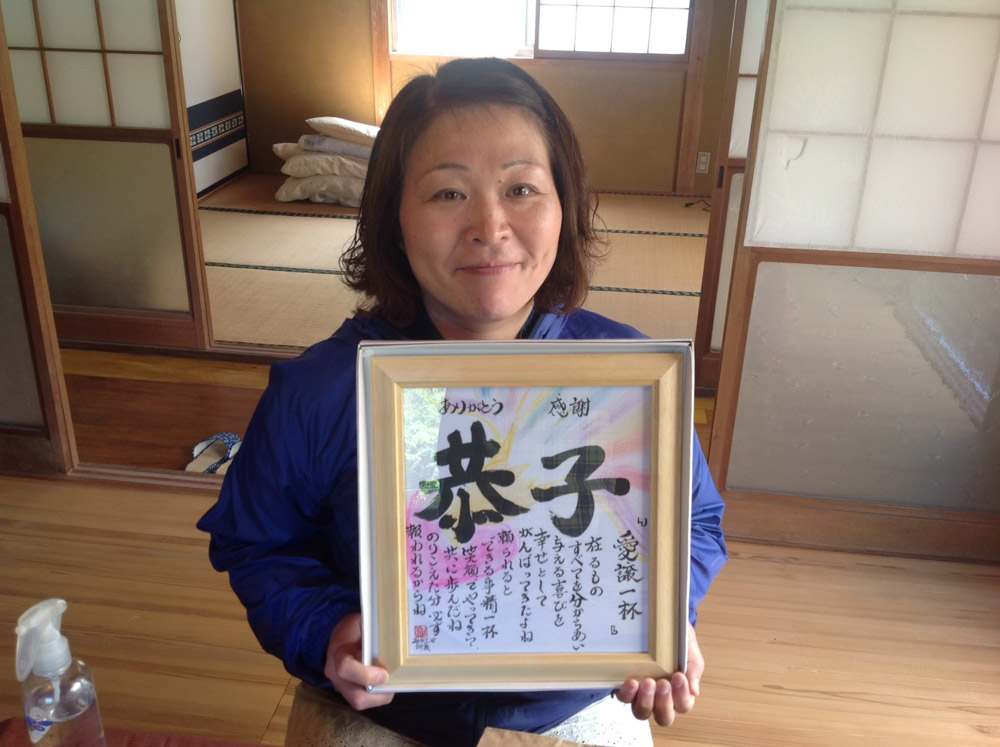 ありがとう 感謝
恭子
『愛譲一杯』
在るもの
すべてを分かちあい
与える喜びを
幸せとして
がんばってきたよね
頼られると
できる事精一杯
笑顔でやってきて
共に歩んだね
のりこえた分必ず
報われるからね